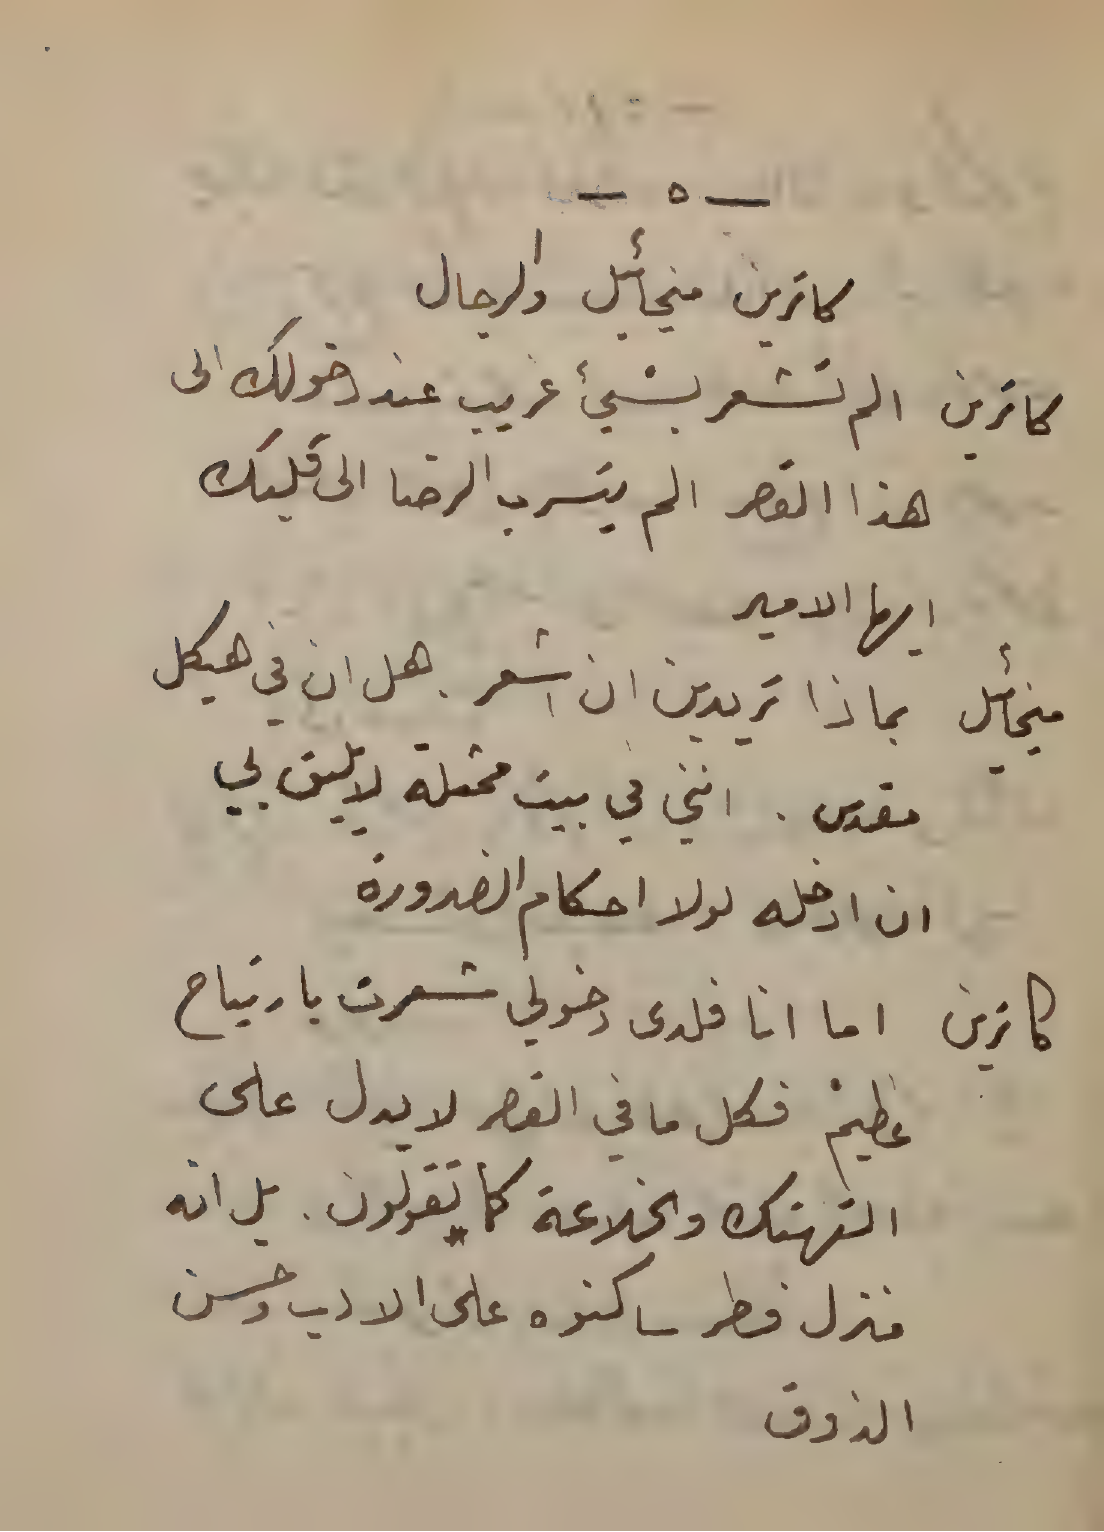 — ٥ —
كاترين ميخائيل والرجال
كاترين الم تشعر بشيئ غريب عند دخولك الى
هذا القصر الم يتسرب الرضا الى قلبك
ايها الامير
ميخائيل بماذا تريدين ان اشعر . هل ان في هيكل
مقدس . انني في بيت ممثلة لا يليق بي
ان ادخله لولا احكام الضرورة
كاترين اما انا فلدى دخولي شعرت بارتياح
عظيم فكل ما في القصر لا يدل على
التهتك والخلاعة كما تقولون . بل انه
منزل فطر ساكنوه على الادب وحسن
الذوق